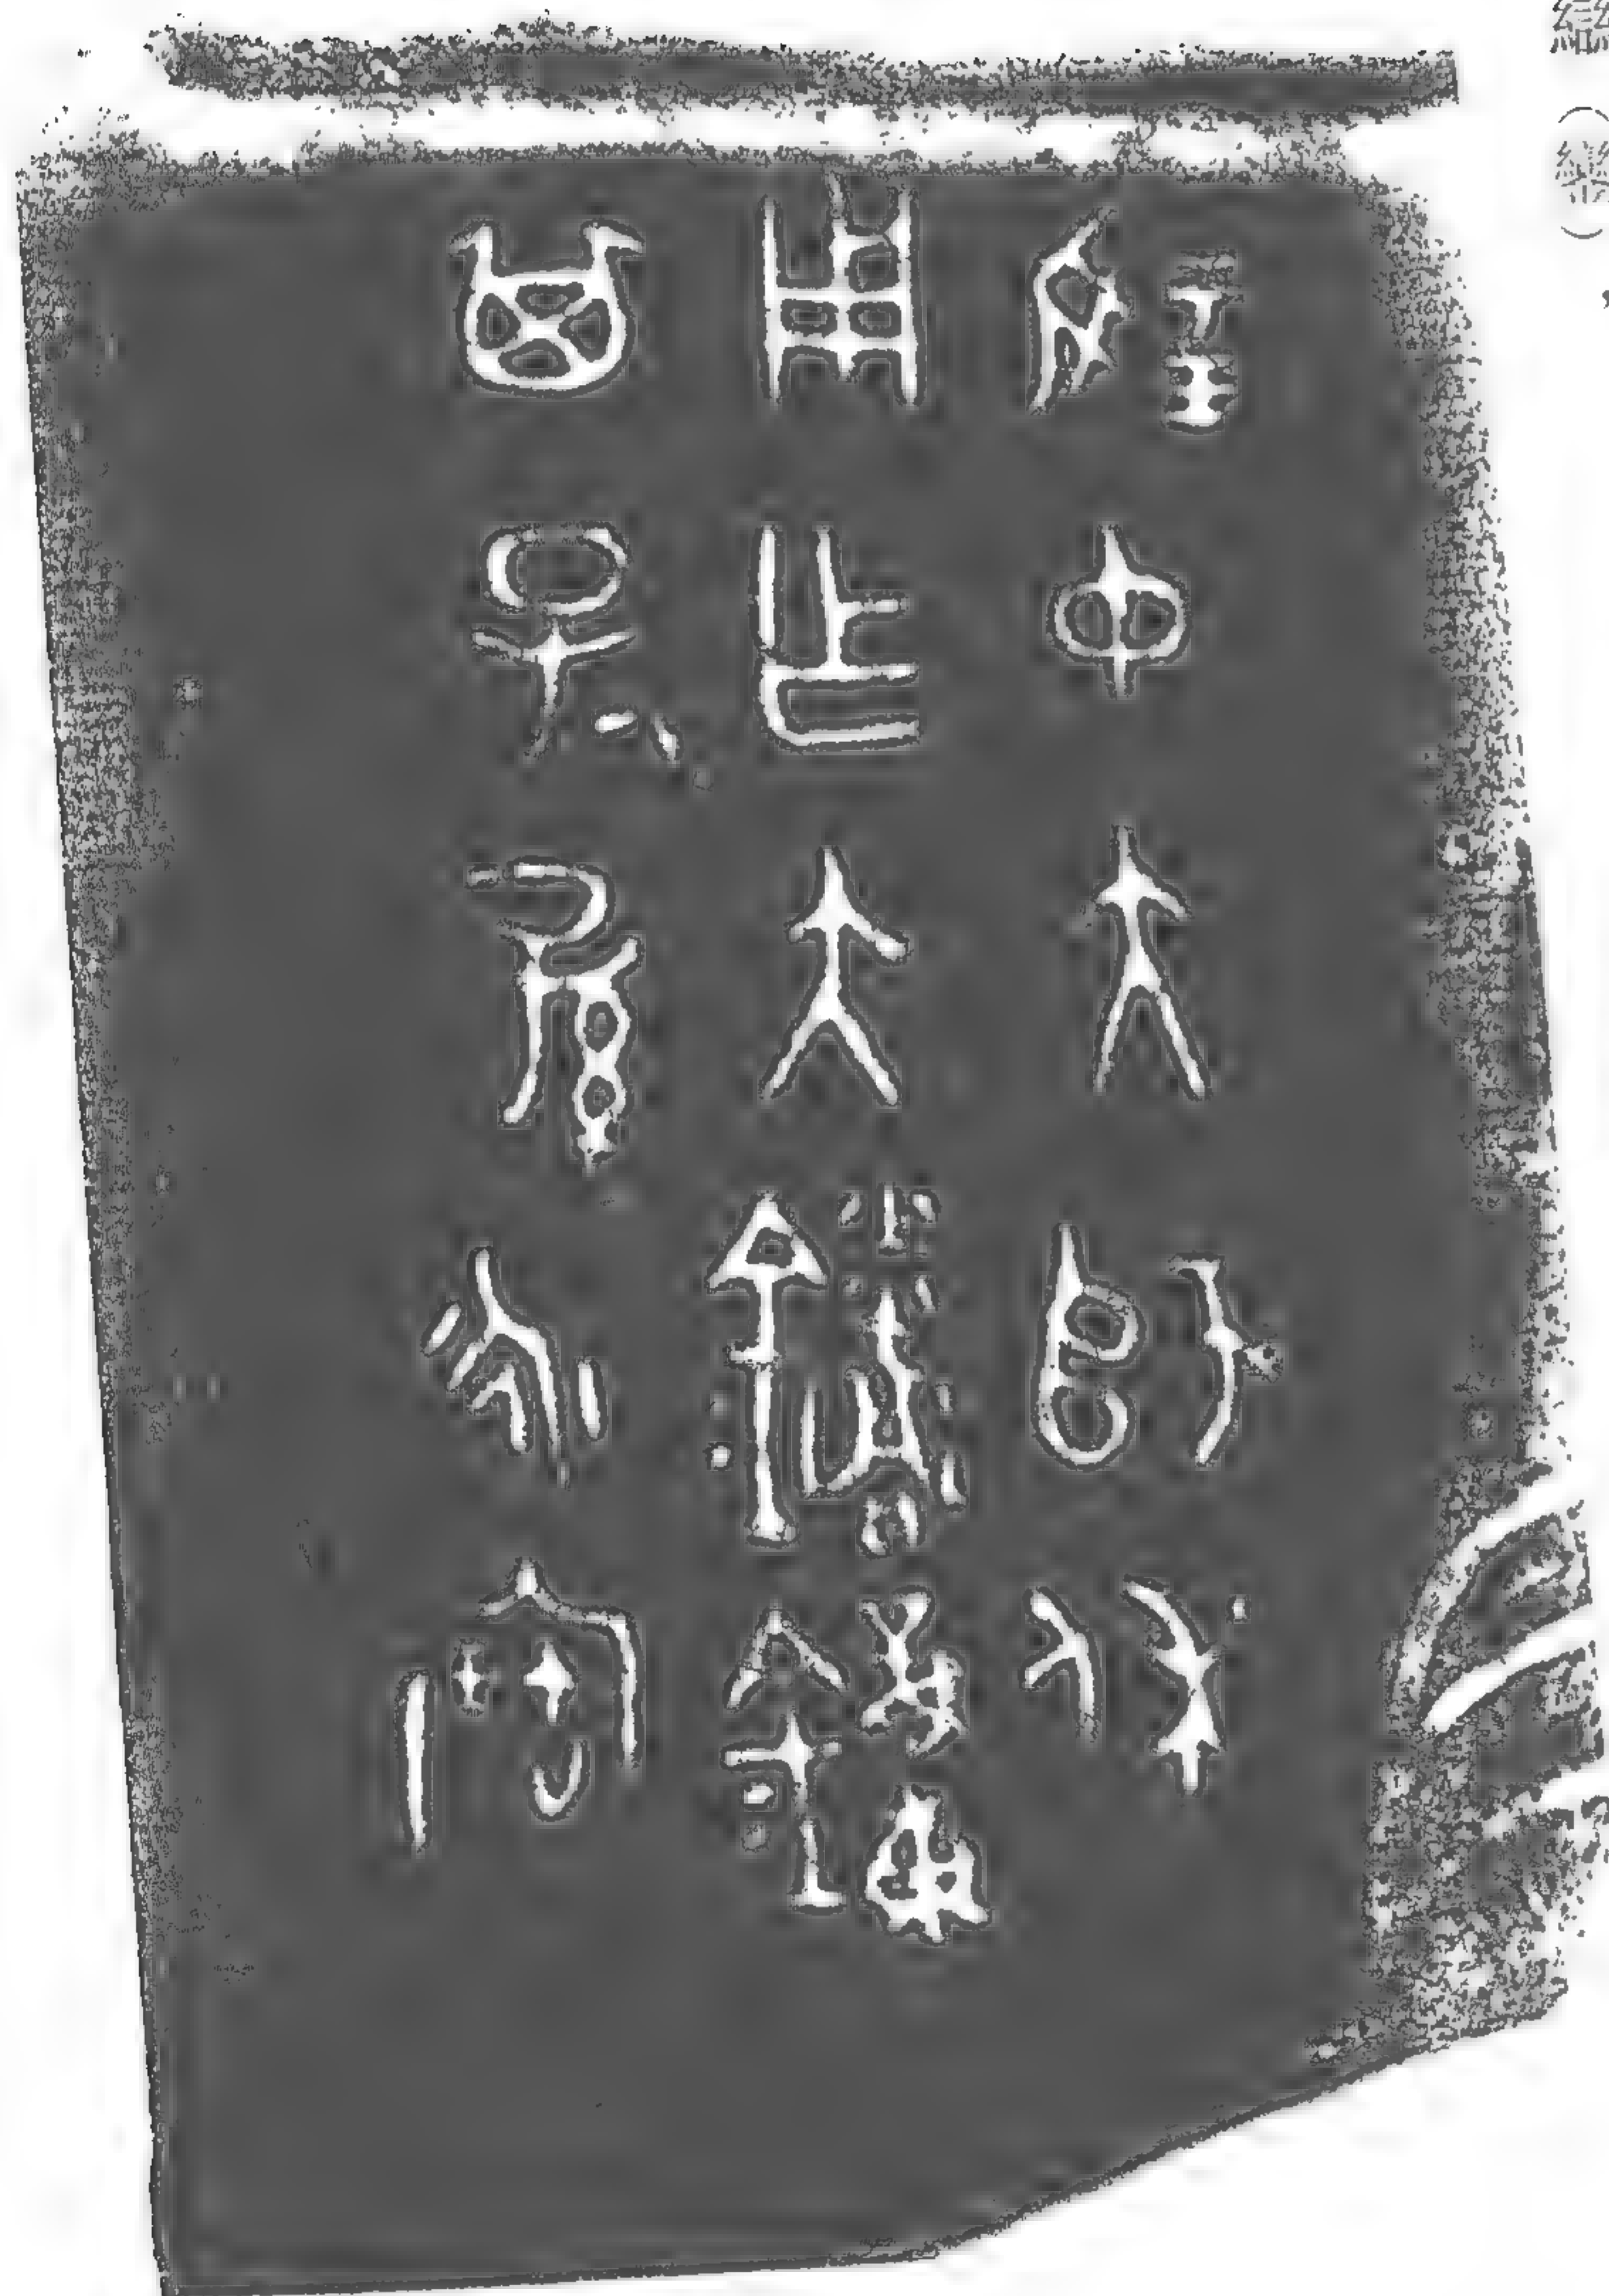 揚中大師休
用乍大鑐鐘
其子孫永寶